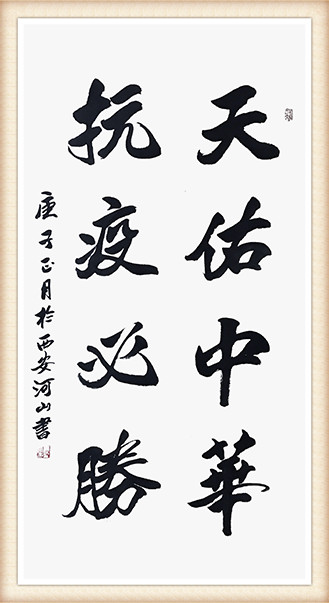 天佑中華
抗疫必勝
庚子正月於西安河山書